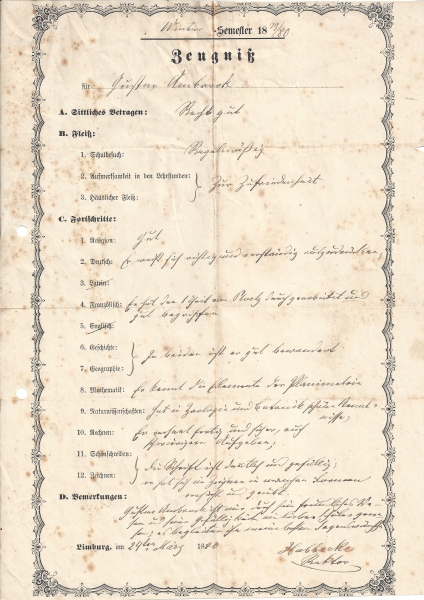 Winter -Semester 1879/80
Zeugniß
für Gustav
A. Sittliches Betragen: Recht gut
B. Fleiß:
1. Schulbesuch: Regelmäßig
2. Aufmerksamkeit in den Lehrstunden:
Zur Zufriedenheit
3. Häuslicher Fleiß:
C. Fortschritte:
1. Religion: Gut
2. Deutsch: Er weiß sich richtig und verständig auszudrücken,
3. Latein:
4. Französisch: Er hat den 1 Theil von Ploetz durchgearbeitet und
gut begriffen
5. Englisch:
6. Geschichte:
In beiden ist er gut bewandert
7. Geographie:
8. Mathematik: Er kennt die Elemente der Planimetrie
9. Naturwissenschaften: Hat in Zoologie und Botanik schöne Kennt-
nisse,
10. Rechnen: Er rechnet fertig und sicher, auch
schwierigere Aufgaben,
11. Schönschreiben: Die Schrift ist deutlich und gefällig;
12. Zeichnen: er hat sich im Zeichnen in manchen Formen
versucht und geübt
D. Bemerkungen: Gustav ist mir durch sein freundliches We-
sen und sein Gefälligkeit ein lieber Schüler gewe-
sen; es begleiten ihn meine besten Segenswünsche
Limburg, im 24ten März 1880
Rektor